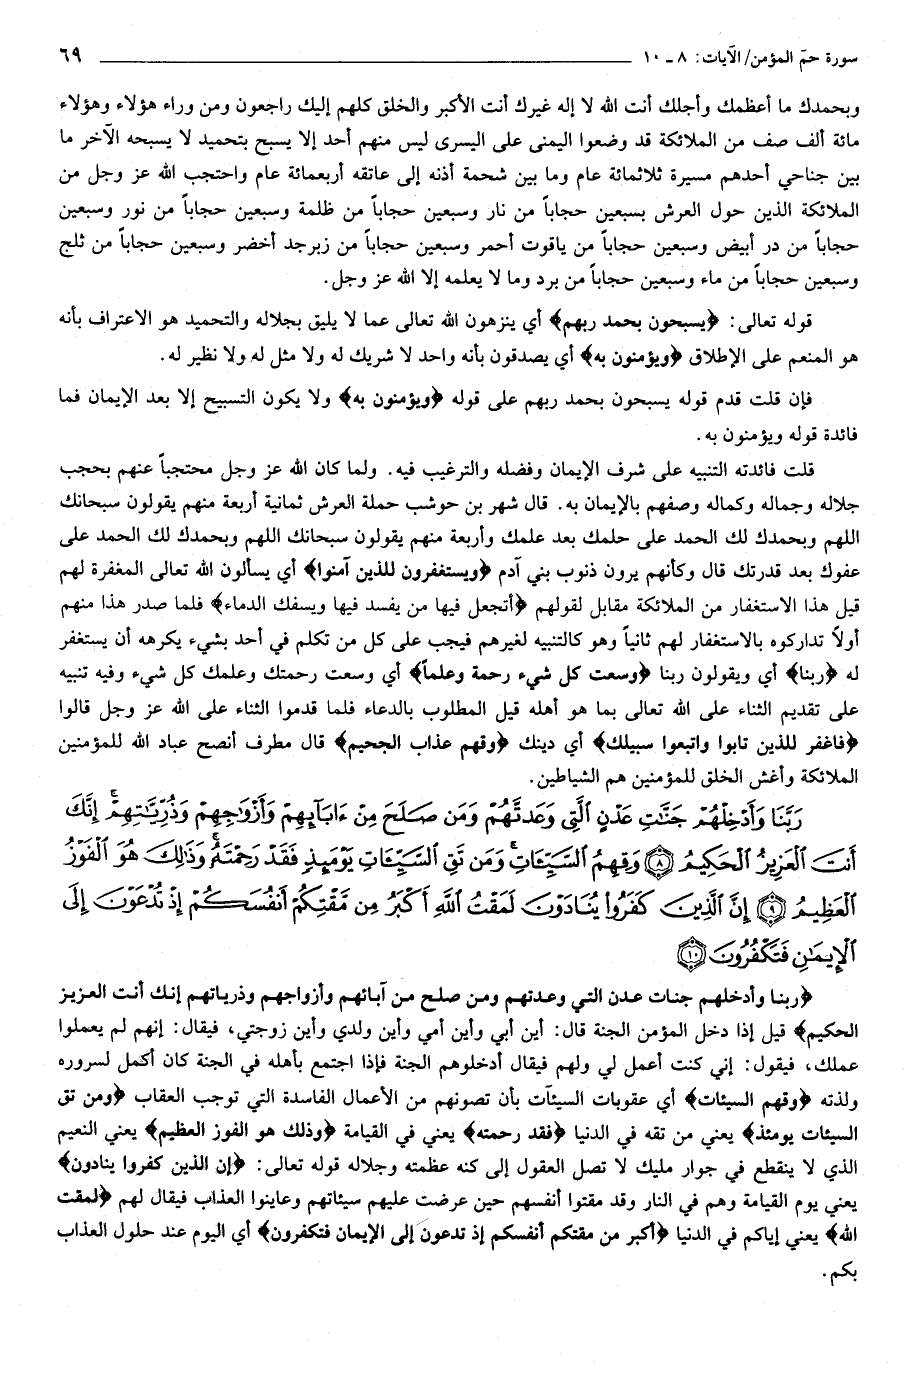 سورة حمّ المؤمن/ الآيات: ٨ - ١٠ ٦٩
وبحمدك ما أعظمك وأجلك أنت الله لا إله غيرك أنت الأكبر والخلق كلهم إليك راجعون ومن وراء هؤلاء وهؤلاء
مائة ألف صف من الملائكة قد وضعوا اليمنى على اليسرى ليس منهم أحد إلا يسبح بتحميد لا يسبحه الآخر ما
بين جناحي أحدهم مسيرة ثلاثمائة عام وما بين شحمة أذنه إلى عاتقه أربعمائة عام واحتجب الله عز وجل من
الملائكة الذين حول العرش بسبعين حجاباً من نار وسبعين حجاباً من ظلمة وسبعين حجاباً من نور وسبعين
حجاباً من در أبيض وسبعين حجاباً من ياقوت أحمر وسبعين حجاباً من زبرجد أخضر وسبعين حجاباً من ثلج
وسبعين حجاباً من ماء وسبعين حجاباً من برد وما لا يعلمه إلا الله عز وجل.
قوله تعالى: ﴿يسبحون بحمد ربهم﴾ أي ينزهون الله تعالى عما لا يليق بجلاله والتحميد هو الاعتراف بأنه
هو المنعم على الإطلاق ﴿ويؤمنون به﴾ أي يصدقون بأنه واحد لا شريك له ولا مثل له ولا نظير له.
فإن قلت قدم قوله يسبحون بحمد ربهم على قوله ﴿ويؤمنون به﴾ ولا يكون التسبيح إلا بعد الإيمان فما
فائدة قوله ويؤمنون به.
قلت فائدته التنبيه على شرف الإيمان وفضله والترغيب فيه. ولما كان الله عز وجل محتجباً عنهم بحجب
جلاله وجماله وكماله وصفهم بالإيمان به. قال شهر بن حوشب حملة العرش ثمانية أربعة منهم يقولون سبحانك
اللهم وبحمدك لك الحمد على حلمك بعد علمك وأربعة منهم يقولون سبحانك اللهم وبحمدك لك الحمد على
عفوك بعد قدرتك قال وكأنهم يرون ذنوب بني آدم ﴿ويستغفرون للذين آمنوا﴾ أي يسألون الله تعالى المغفرة لهم
قيل هذا الاستغفار من الملائكة مقابل لقولهم ﴿أتجعل فيها من يفسد فيها ويسفك الدماء﴾ فلما صدر هذا منهم
أولاً تداركوه بالاستغفار لهم ثانياً وهو كالتنبيه لغيرهم فيجب على كل من تكلم في أحد بشيء يكرهه أن يستغفر
له ﴿ربنا﴾ أي ويقولون ربنا ﴿وسعت كل شيء رحمة وعلماً﴾ أي وسعت رحمتك وعلمك كل شيء وفيه تنبيه
على تقديم الثناء على الله تعالى بما هو أهله قيل المطلوب بالدعاء فلما قدموا الثناء على الله عز وجل قالوا
﴿فاغفر للذين تابوا واتبعوا سبيلك﴾ أي دينك ﴿وقهم عذاب الجحيم﴾ قال مطرف أنصح عباد الله للمؤمنين
الملائكة وأغش الخلق للمؤمنين هم الشياطين.
رَبَّنَا وَأَدْخِلْهُمْ جَنَّٰتِ عَدْنٍ الَّتِى وَعَدتَّهُمْ وَمَن صَلَحَ مِنْ ءَابَآئِهِمْ وَأَزْوَٰجِهِمْ وَذُرِّيَّٰتِهِمْ ۚ إِنَّكَ
أَنتَ الْعَزِيزُ الْحَكِيمُ ﴿٨﴾ وَقِهِمُ السَّيِّـَٔاتِ ۚ وَمَن تَقِ السَّيِّـَٔاتِ يَوْمَئِذٍ فَقَدْ رَحِمْتَهُۥ ۚ وَذَٰلِكَ هُوَ الْفَوْزُ
الْعَظِيمُ ﴿٩﴾ إِنَّ الَّذِينَ كَفَرُوا۟ يُنَادَوْنَ لَمَقْتُ اللَّهِ أَكْبَرُ مِن مَّقْتِكُمْ أَنفُسَكُمْ إِذْ تُدْعَوْنَ إِلَى
الْإِيمَٰنِ فَتَكْفُرُونَ ﴿١٠﴾
﴿ربنا وأدخلهم جنات عدن التي وعدتهم ومن صلح من آبائهم وأزواجهم وذرياتهم إنك أنت العزيز
الحكيم﴾ قيل إذا دخل المؤمن الجنة قال: أين أبي وأين أمي وأين ولدي وأين زوجتي، فيقال: إنهم لم يعملوا
عملك، فيقول: إني كنت أعمل لي ولهم فيقال أدخلوهم الجنة فإذا اجتمع بأهله في الجنة كان أكمل لسروره
ولذته ﴿وقهم السيئات﴾ أي عقوبات السيئات بأن تصونهم من الأعمال الفاسدة التي توجب العقاب ﴿ومن تق
السيئات يومئذ﴾ يعني من تقه في الدنيا ﴿فقد رحمته﴾ يعني في القيامة ﴿وذلك هو الفوز العظيم﴾ يعني النعيم
الذي لا ينقطع في جوار مليك لا تصل العقول إلى كنه عظمته وجلاله قوله تعالى: ﴿إن الذين كفروا ينادون﴾
يعني يوم القيامة وهم في النار وقد مقتوا أنفسهم حين عرضت عليهم سيئاتهم وعاينوا العذاب فيقال لهم ﴿لمقت
الله﴾ يعني إياكم في الدنيا ﴿أكبر من مقتكم أنفسكم إذ تدعون إلى الإيمان فتكفرون﴾ أي اليوم عند حلول العذاب
بكم.